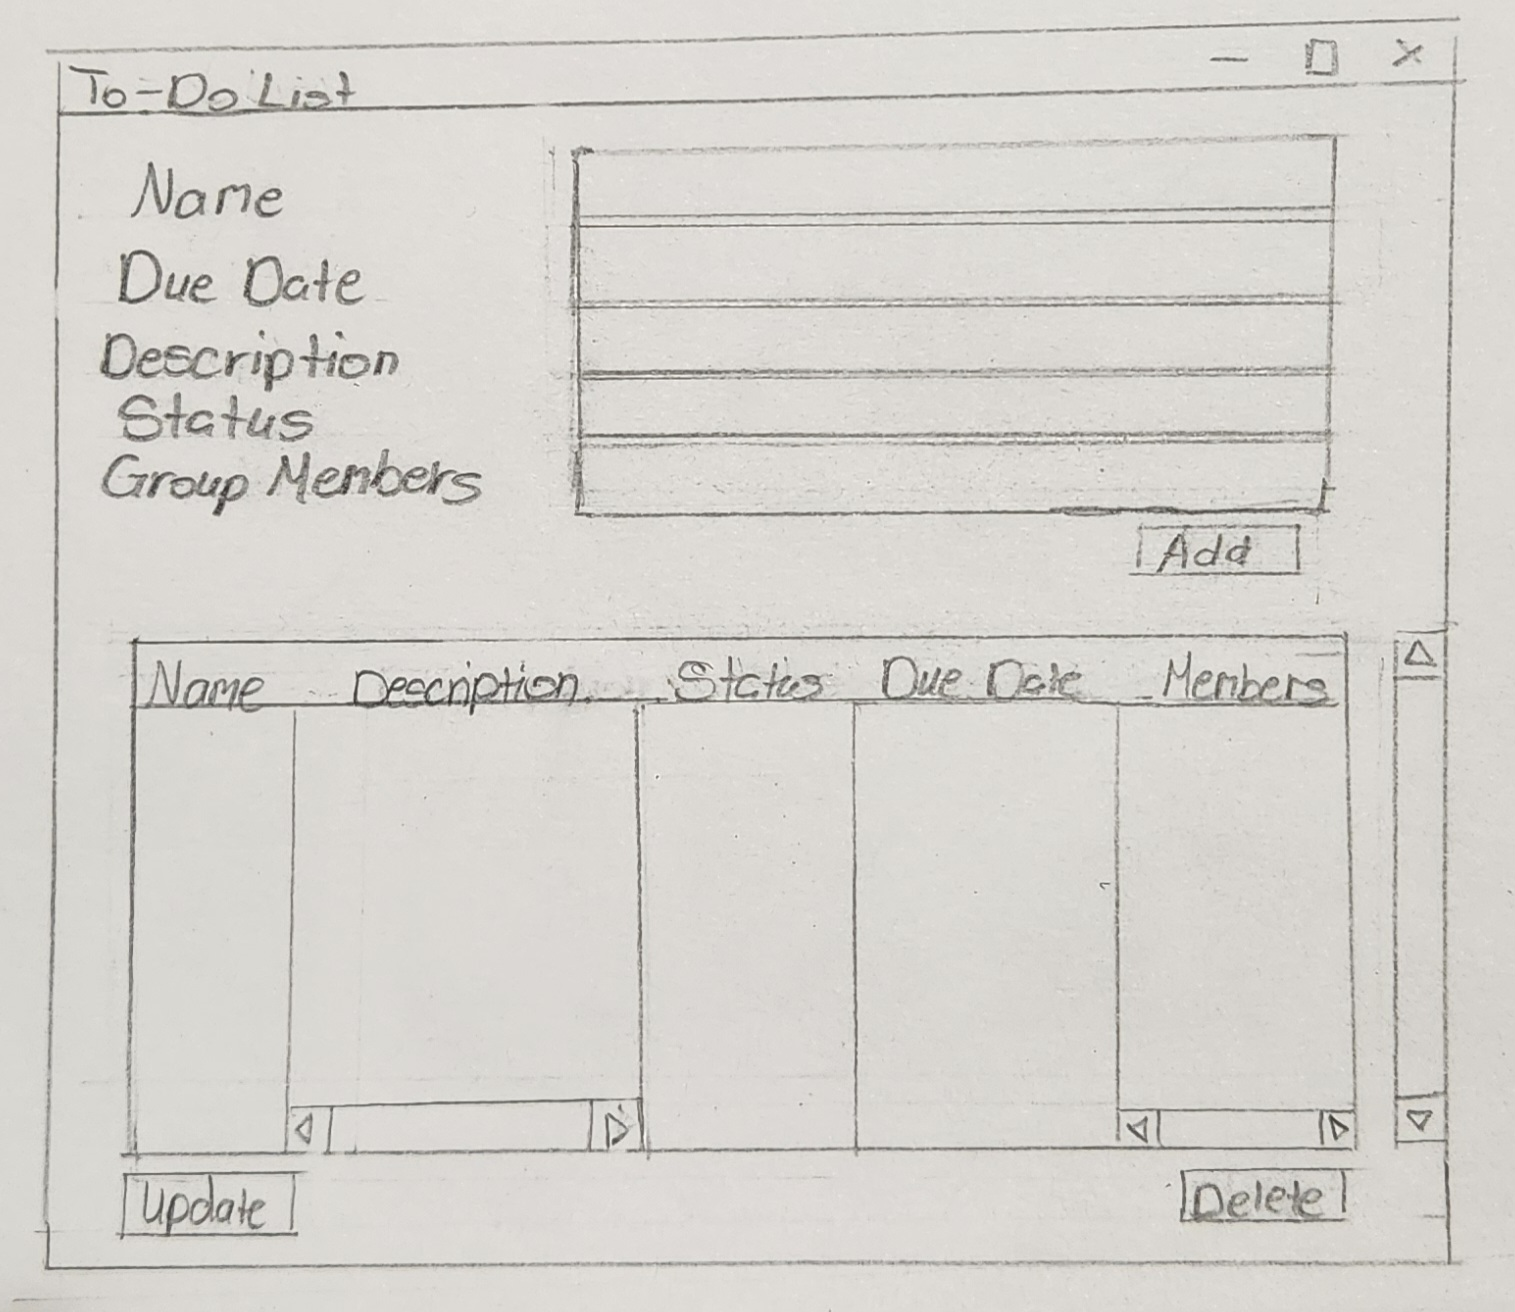 To-Do List
Name
Due Date
Description
Status
Group Members
Add
Name Description Status Due Date Members
Update Delete